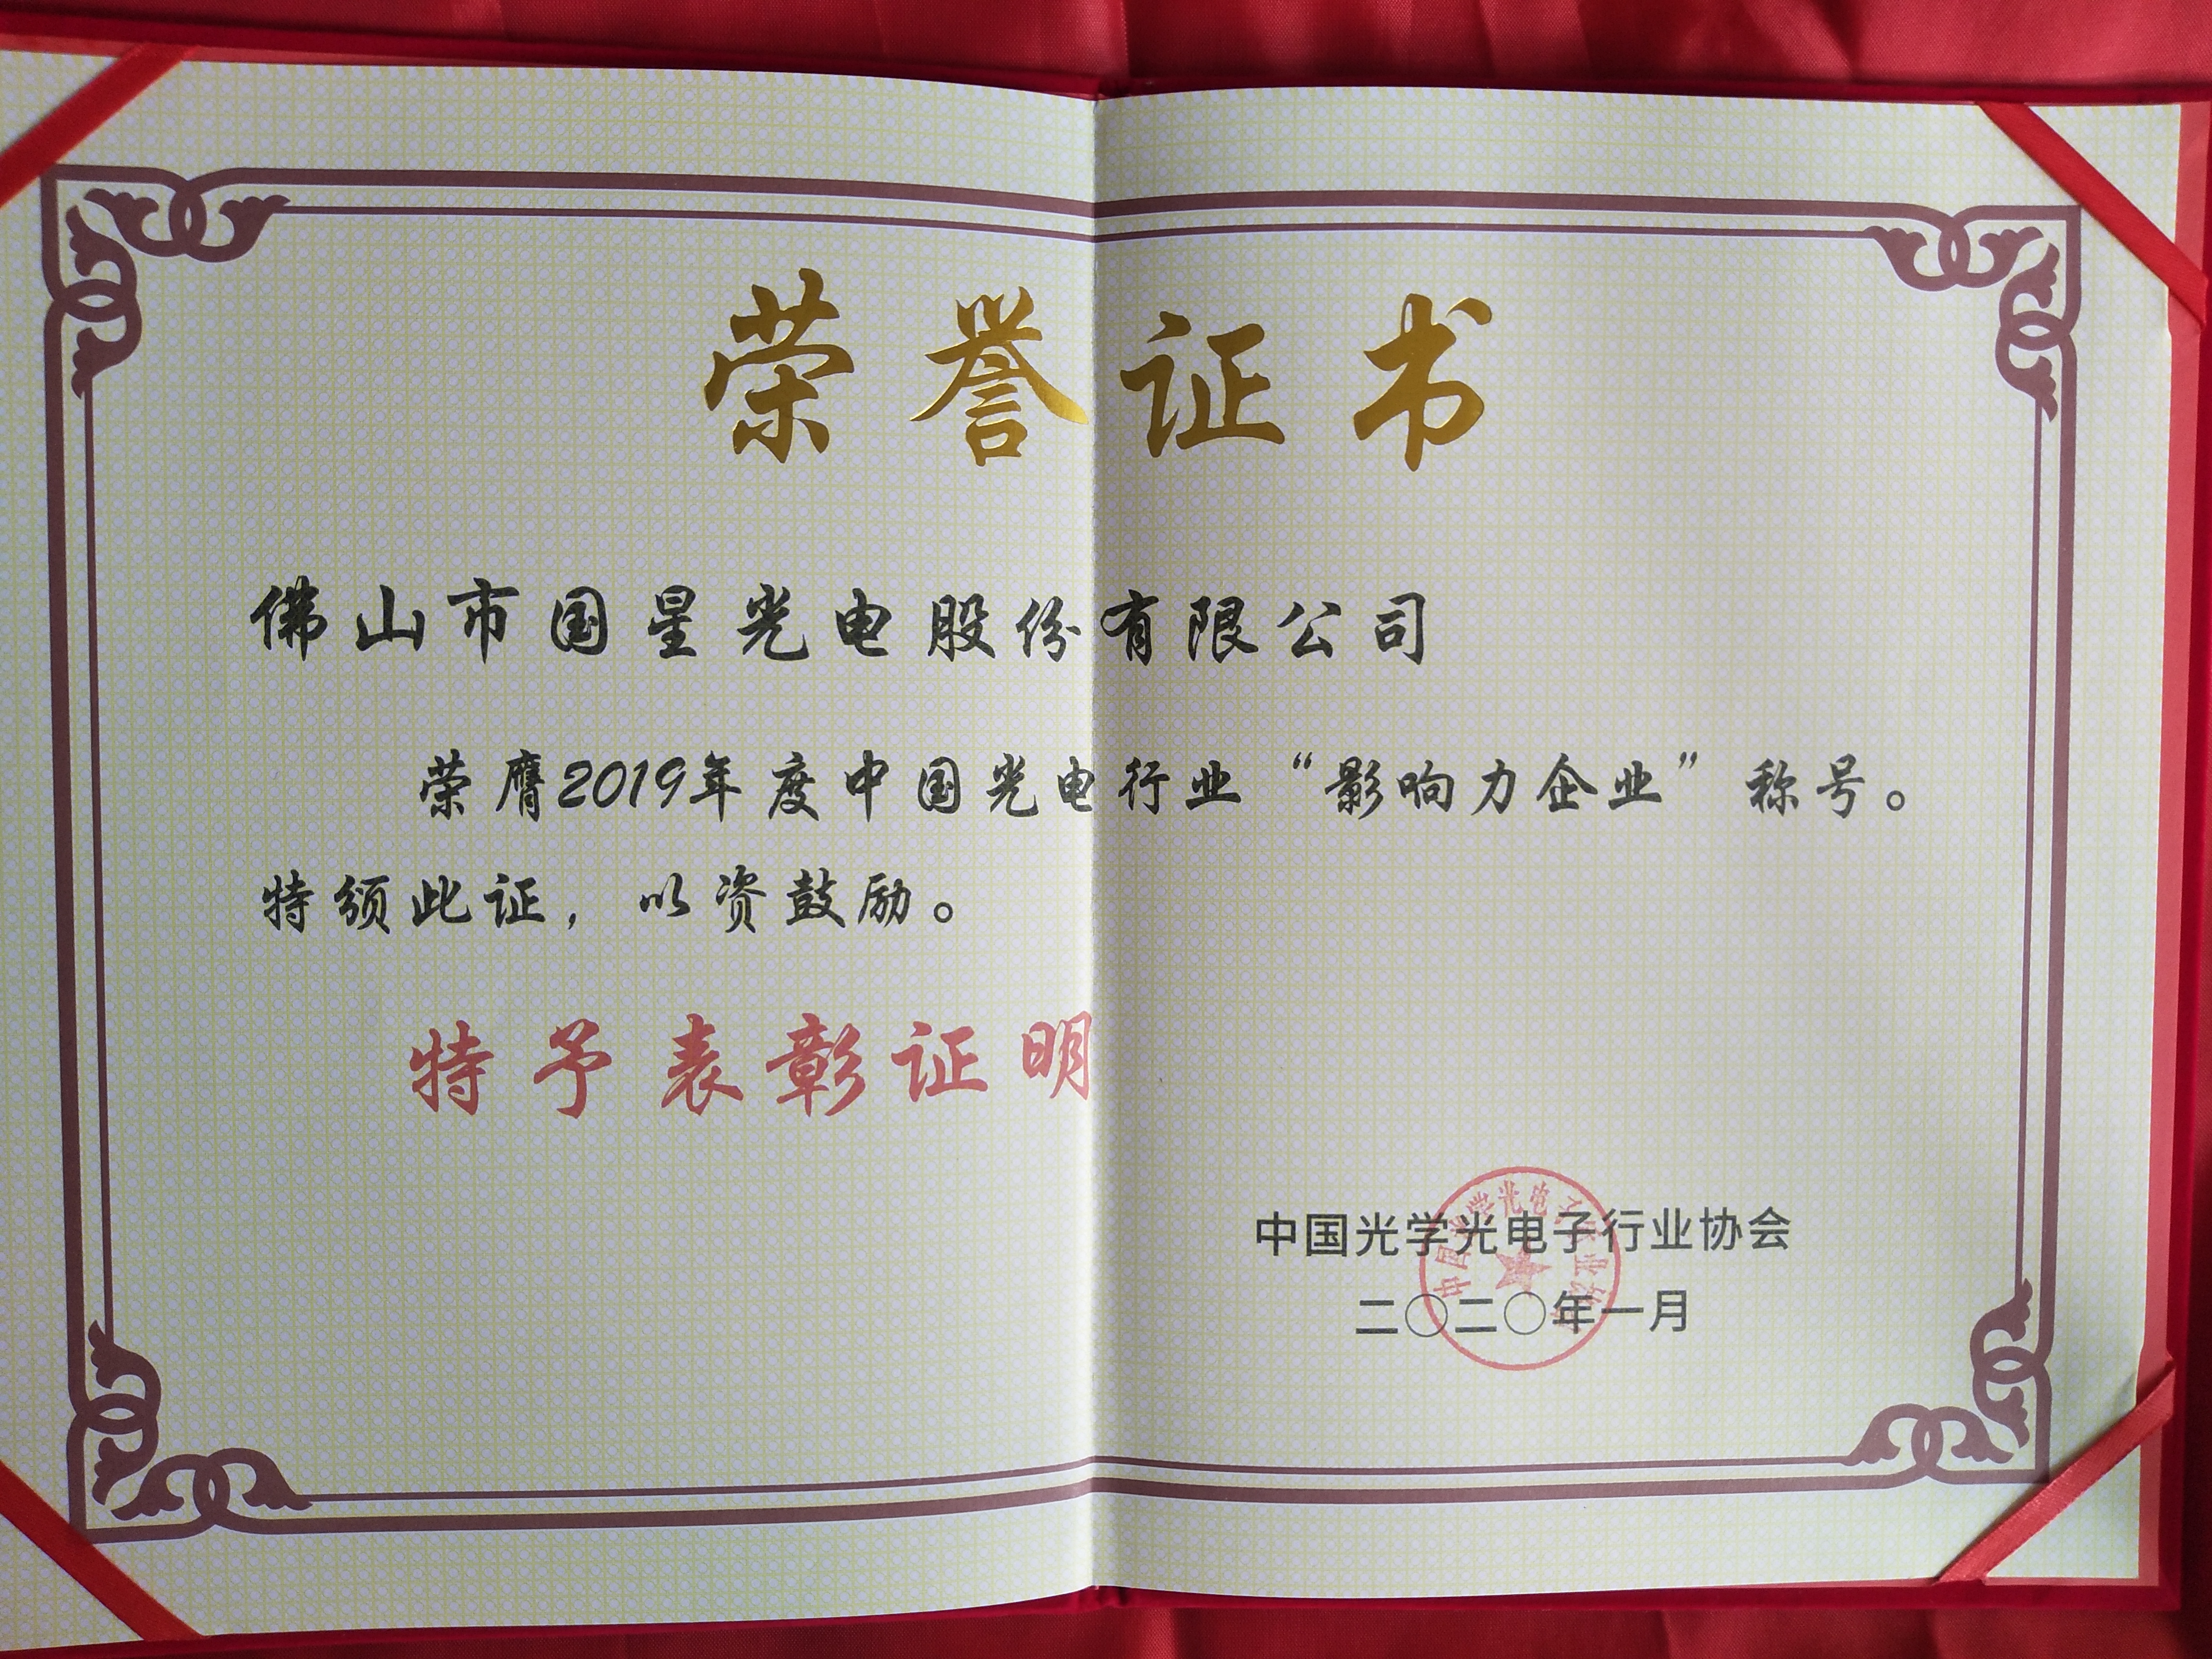 荣誉证书
佛山市国星光电股份有限公司
荣膺2019年度中国光电行业“影响力企业”称号。
特颁此证，以资鼓励。
特予表彰证明
中国光学光电子行业协会
二〇二〇年一月